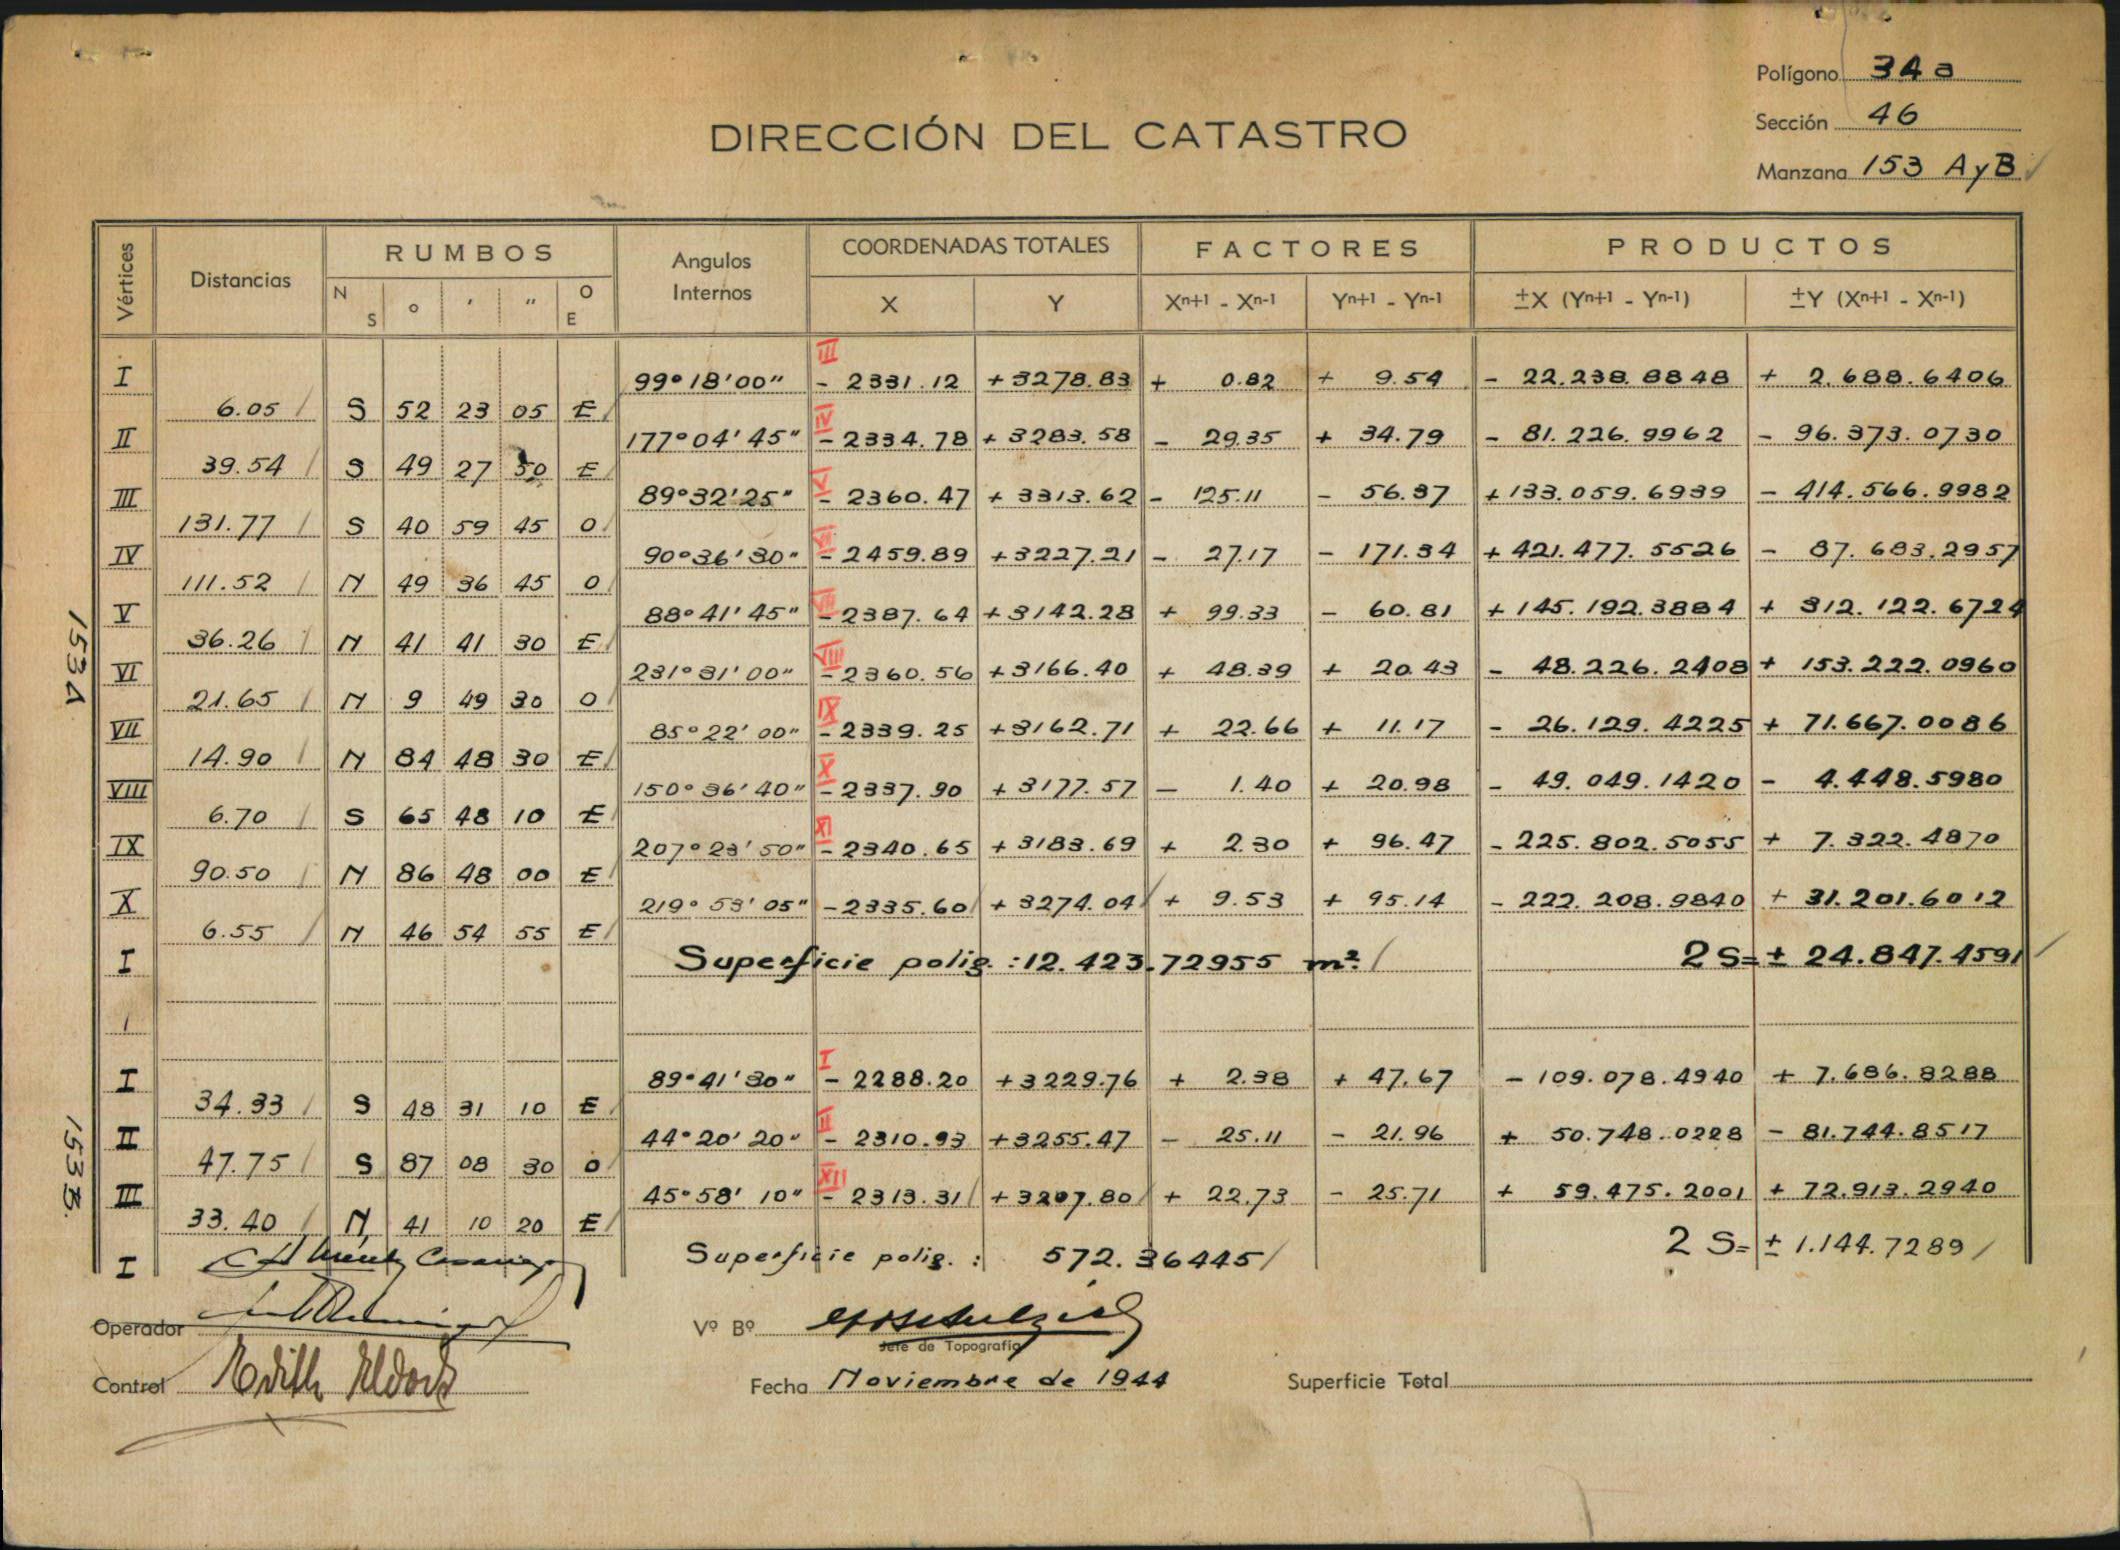 Polígono 34 a
Sección 46
DIRECCIÓN DEL CATASTRO
Manzana 153 A y B
Vértices Distancias RUMBOS Angulos Internos COORDENADAS TOTALES FACTORES PRODUCTOS
N S o ' " O E X Y Xn+1 - Xn-1 Yn+1 - Yn-1 ±X (Yn+1 - Yn-1) ±Y (Xn+1 - Xn-1)
III
I 99° 18' 00" - 2331.12 +3278.83 + 0.82 + 9.54 - 22.238.8848 + 2.688.6406
6.05 S 52 23 05 E
IV
II 177° 04' 45" - 2334.78 + 3283.58 - 29.35 + 34.79 - 81.226.9962 - 96.373.0730
39.54 S 49 27 50 E
V
III 89° 32' 25" - 2360.47 + 3313.62 - 125.11 - 56.37 + 133.059.6939 - 414.566.9982
131.77 S 40 59 45 O
VI
IV 90° 36' 30" - 2459.89 +3227.21 - 27.17 - 171.34 + 421.477.5526 - 87.683.2957
111.52 N 49 36 45 O
VII
V 88° 41' 45" - 2387.64 +3142.28 + 99.33 - 60.81 + 145.192.3884 + 312.122.6724
36.26 N 41 41 30 E
153 A
VIII
VI 231° 31' 00" - 2360.56 +3166.40 + 48.39 + 20.43 - 48.226.2408 + 153.222.0960
21.65 N 9 49 30 O
IX
VII 85° 22' 00" - 2339.25 +3162.71 + 22.66 + 11.17 - 26.129.4225 + 71.667.0086
14.90 N 84 48 30 E
X
VIII 150° 36' 40" - 2337.90 + 3177.57 - 1.40 + 20.98 - 49.049.1420 - 4.448.5980
6.70 S 65 48 10 E
XI
IX 207° 23' 50" - 2340.65 + 3183.69 + 2.30 + 96.47 - 225.802.5055 + 7.322.4870
90.50 N 86 48 00 E
X 219° 53' 05" - 2335.60 + 3274.04 + 9.53 + 95.14 - 222.208.9840 + 31.201.6012
6.55 N 46 54 55 E
I Superficie polig. : 12.423.72955 m². 2 S= ± 24.847.4591
I
I 89° 41' 30" - 2288.20 +3229.76 + 2.38 + 47.67 - 109.078.4940 + 7.686.8288
34.33 S 48 31 10 E
II
II 44° 20' 20" - 2310.93 +3255.47 - 25.11 - 21.96 + 50.748.0228 - 81.744.8517
47.75 S 87 08 30 O
153 B.
XII
III 45° 58' 10" - 2313.31 +3207.80 + 22.73 - 25.71 + 59.475.2001 + 72.913.2940
33.40 N 41 10 20 E
I Superficie polig. : 572.36445 2 S= ± 1.144.7289
Operador
Vº Bº
Jefe de Topografía
Control Edith
Fecha Noviembre de 1944
Superficie Total